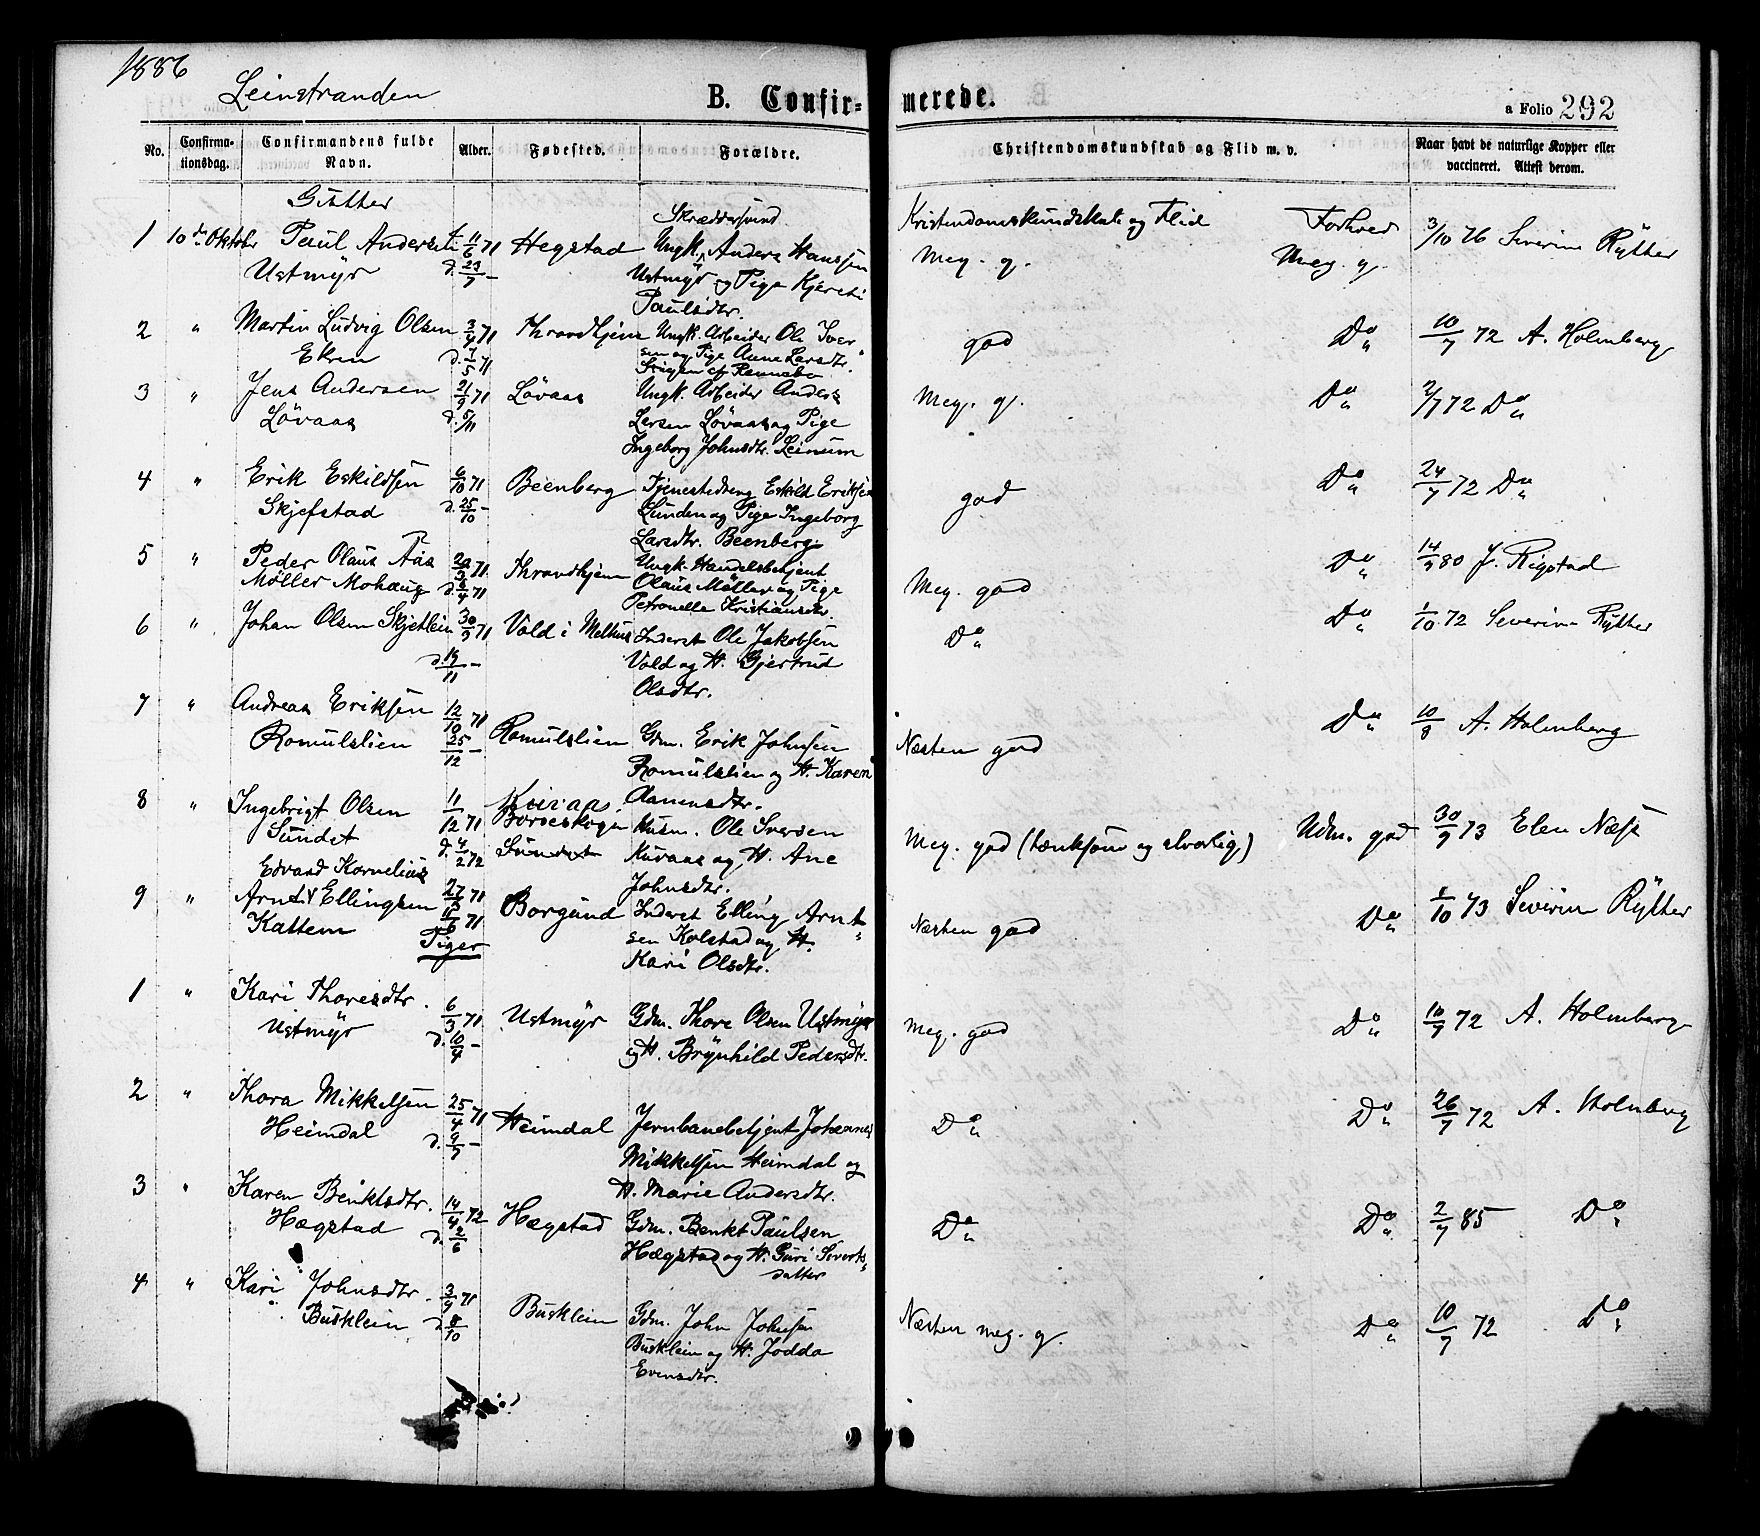 1886
Leinstranden
B. Confir-
merede.
a Folio 292
No.
Confirma-
tionsdag.
Confirmandens fulde
Navn.
Alder.
Fødested.
Forældre.
Christendomskundskab og Flid m. v.
Naar havt de naturlige Kopper eller
vaccineret. Attest derom.
Gutter
Kristendomskundskab og Flid Forhold
1 10de Oktober Paul Andersen 11/6 71 Hegstad Ungk. Anders Hanssen Meg. g. Meg. g. 3/10 76 Severin Rytter
Ustmyr d. 23/7 - Ustmyr og Pige Kjersti
Paulsdtr.
2 " Martin Ludvig Olsen 3/4 71 Throndhjem Ungk. Arbeider Ole Iver- god Do 10/7 72 A. Holmberg
Ekren d. 7/5 71 sen og Pige Anne Larsdtr.
3 " Jens Andersen 21/9 71 Løvaas Ungk. Arbeider Anders Meg. g. Do 2/7 72 Do
Løvaas d. 5/11 Larsen Løvaas og Pige
Ingeborg Johnsdtr. Leinum
4 " Erik Eskildsen 6/10 71 Beenberg Tjenestedreng Eskild Eriksen god Do 24/7 72 Do
Skjefstad d. 25/10 - Lunden og Pige Ingeborg
Larsdtr. Beenberg
5 " Peder Olaus Aas Throndhjem Ungk. Handelsbetjent Meg. god Do 14/9 80 J. Rigstad
Møller Mohaug Olaus Møller og Pige
Petronelle Kristiansdtr.
6 " Johan Olsen Skjetlein 30/9 71 Vold i Melhus Inderst Ole Jakobsen Do Do 1/10 72 Severin Rytter
d. 19/11 - Vold og H. Gjertrud
Olsdtr.
7 " Andreas Eriksen 12/10 71 Romulslien Gdm. Erik Johnsen Næsten god Do 10/8 A. Holmberg
Romulslien 25/12 - Romulslien og H. Karen
8 " Ingebrigt Olsen 11/12 71 Husm. Ole Iversen Meg. god (tænksom og alvorlig) Udm. god 30/9 73 Elen Næss
Sundet d. 4/2 72 Sundet Kuvaas og H. Ane
Johnsdtr.
Edvard Kornelius
9 " Arnt Ellingsen Borgund Inderst Elling Arnt- Næsten god Do 1/10 73 Severin Rytter
Kattem sen Kolstad og H.
Kari Olsdtr.
Piger
1 " Kari Thoresdtr. 6/3 71 Ustmyr Gdm. Thore Olsen Ustmyr Meg. god Do 10/7 72 A. Holmberg
Ustmyr d. 10/4 - og H. Brynhild Pedersdtr.
2 " Thora Mikkelsen 25/4 71 Heimdal Jernbanebetjent Johannes Do Do 26/7 72 A. Holmberg
Heimdal d. 9/7 - Mikkelsen Heimdal og
H. Marie Andersdtr.
3 " Karen Benktsdtr. 14/4 72 Hægstad Gdm. Benkt Paulsen Do Do 2/7 85 Do
Hægstad d. 2/6 Hægstad og H. Guri Siverts-
datter
4 " Kari Johnsdtr. 3/9 71 Busklein Gdm. John Johnsen Næsten meg. g. Do 10/7 72 Do
Busklein d. 8/10 Busklein og H. Jodda
Evensdtr.